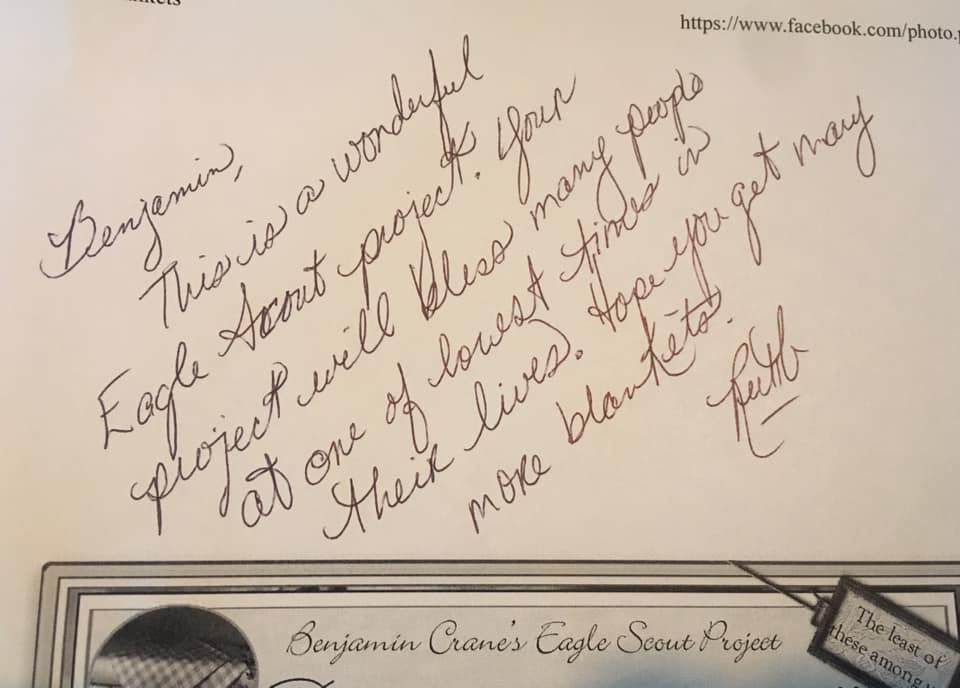 https://www.facebook.com/photo.p
Benjamin,
This is a wonderful
Eagle Scout project. Your
project will bless many people
at one of lowest times in
their lives. Hope you get many
more blankets.
Ruth
Benjamin Crane's Eagle Scout Project
The least of
these among